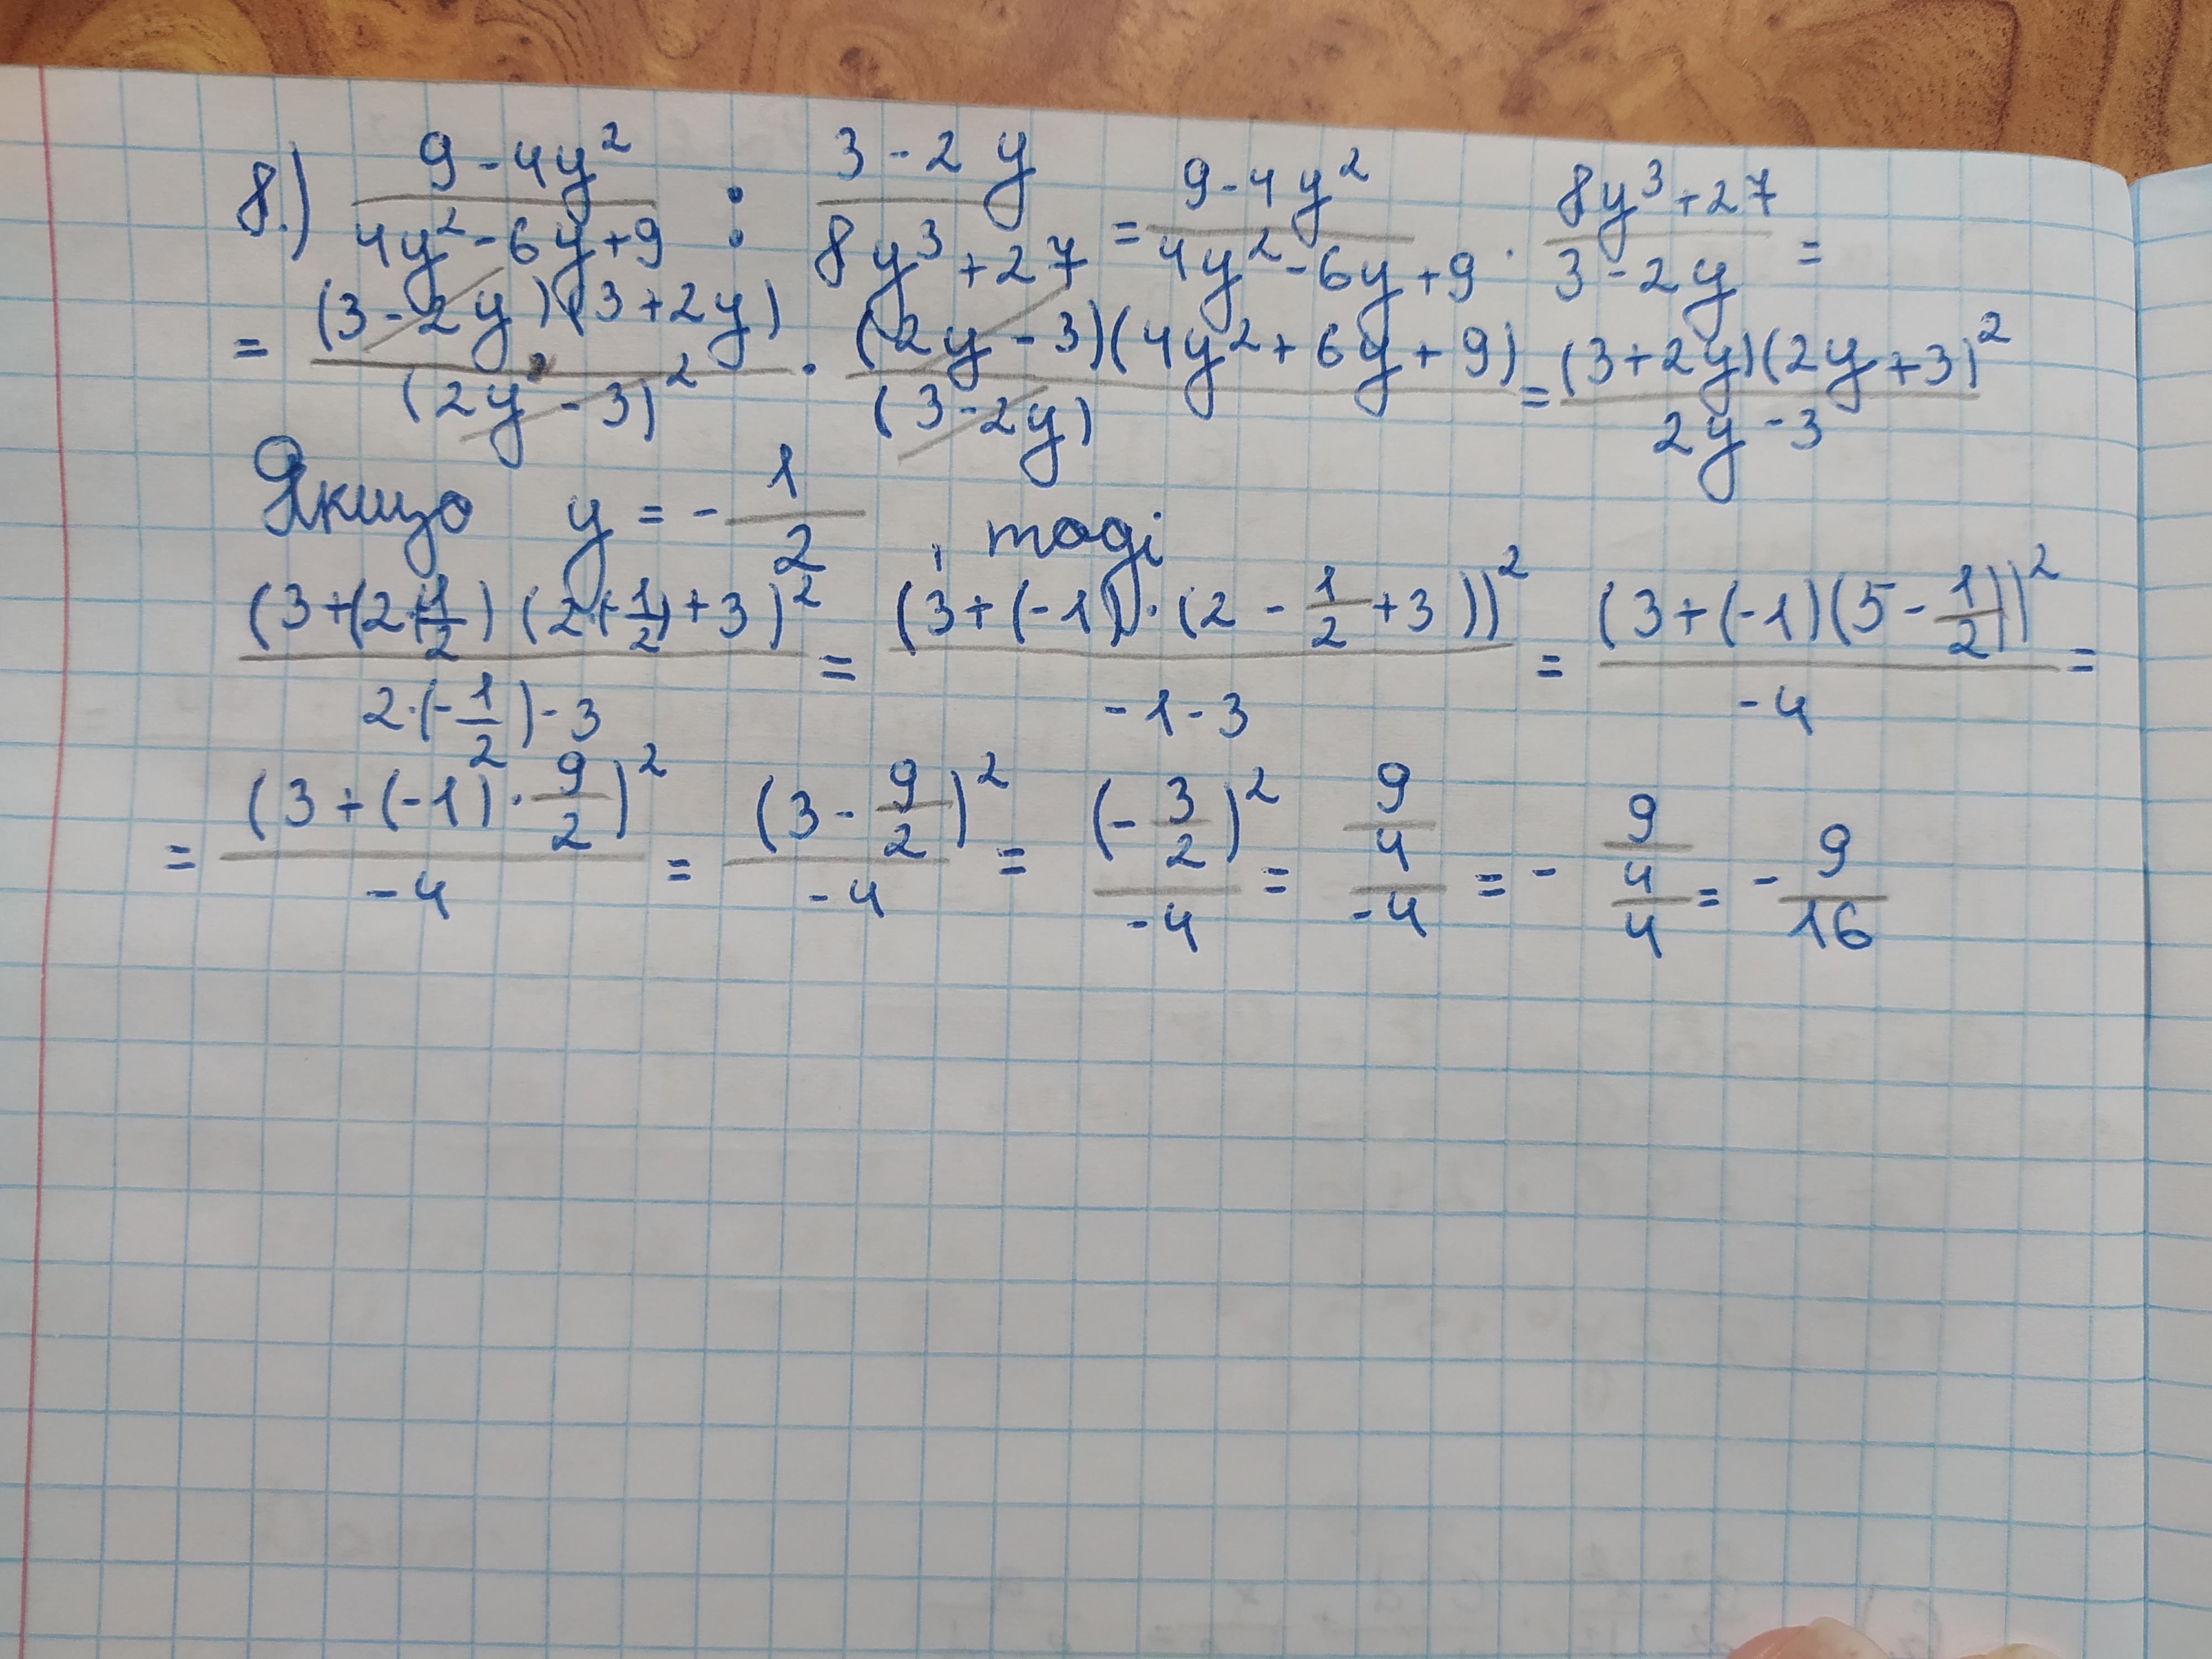 8.) \frac{9-4y^2}{4y^2-6y+9} : \frac{3-2y}{8y^3+27} = \frac{9-4y^2}{4y^2-6y+9} \cdot \frac{8y^3+27}{3-2y} =
= \frac{(3-2y)(3+2y)}{(2y-3)^2} \cdot \frac{(2y-3)(4y^2+6y+9)}{(3-2y)} = \frac{(3+2y)(2y+3)^2}{2y-3}
Якщо y = -\frac{1}{2}, тоді
\frac{(3+(2+\frac{1}{2})(2(+\frac{1}{2})+3)^2}{2\cdot(-\frac{1}{2})-3} = \frac{(3+(-1))\cdot(2-\frac{1}{2}+3))^2}{-1-3} = \frac{(3+(-1)(5-\frac{1}{2}))^2}{-4} =
= \frac{(3+(-1)\cdot\frac{9}{2})^2}{-4} = \frac{(3-\frac{9}{2})^2}{-4} = \frac{(-\frac{3}{2})^2}{-4} = \frac{\frac{9}{4}}{-4} = -\frac{\frac{9}{4}}{4} = -\frac{9}{16}